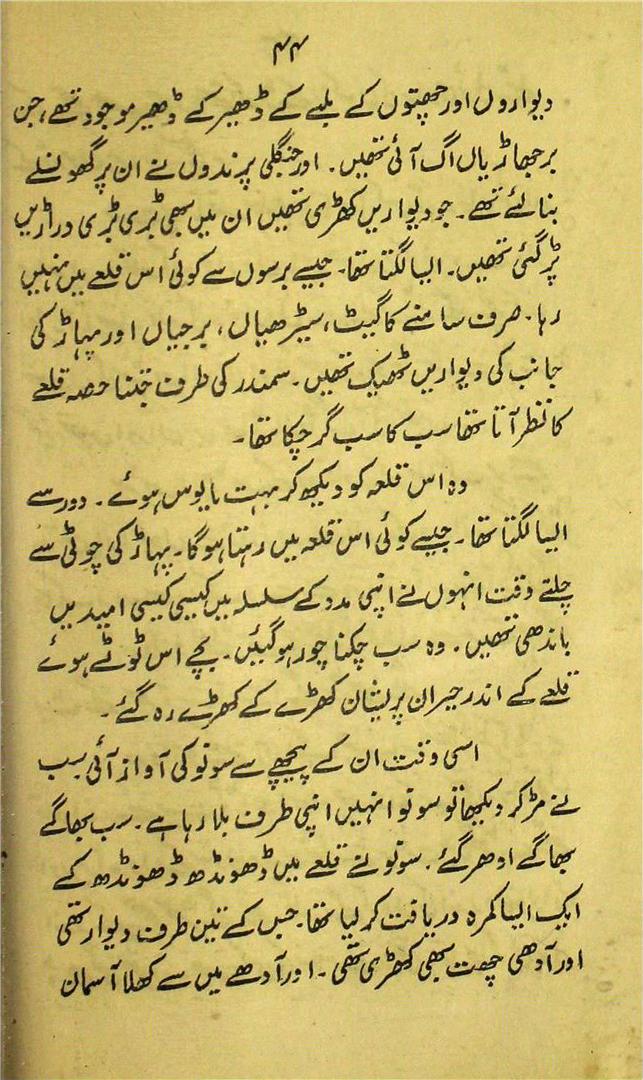 ۴۴
دیواروں اور چھتوں کے ملبے کے ڈھیر کے ڈھیر موجود تھے، جن
پر جھاڑیاں اگ آئی تھیں۔ اور جنگلی پرندوں نے ان پر گھونسلے
بنا لئے تھے۔ جو دیواریں کھڑی تھیں ان میں بھی بڑی بڑی دراڑیں
پڑ گئی تھیں۔ ایسا لگتا تھا۔ جیسے برسوں سے کوئی اس قلعے میں نہیں
رہا۔ صرف سامنے کا گیٹ، سیڑھیاں، برجیاں اور پہاڑ کی
جانب کی دیواریں ٹھیک تھیں۔ سمندر کی طرف جتنا حصہ قلعے
کا نظر آتا تھا سب کا سب گر چکا تھا۔
وہ اس قلعہ کو دیکھ کر بہت مایوس ہوئے۔ دور سے
ایسا لگتا تھا۔ جیسے کوئی اس قلعہ میں رہتا ہوگا۔ پہاڑ کی چوٹی سے
چلتے وقت انہوں نے اپنی مدد کے سلسلہ میں کیسی کیسی امیدیں
باندھی تھیں۔ وہ سب چکنا چور ہو گئیں۔ بچے اس ٹوٹے ہوئے
قلعے کے اندر حیران پریشان کھڑے کے کھڑے رہ گئے۔
اسی وقت ان کے پیچھے سے سوتو کی آواز آئی سب
نے مڑ کر دیکھا تو سوتو انہیں اپنی طرف بلا رہا ہے۔ سب بھاگے
بھاگے ادھر گئے۔ سوتو نے قلعے میں ڈھونڈھ ڈھونڈھ کے
ایک ایسا کمرہ دریافت کر لیا تھا۔ جس کے تین طرف دیوار تھی
اور آدھی چھت بھی کھڑی تھی۔ اور آدھے میں سے کھلا آسمان